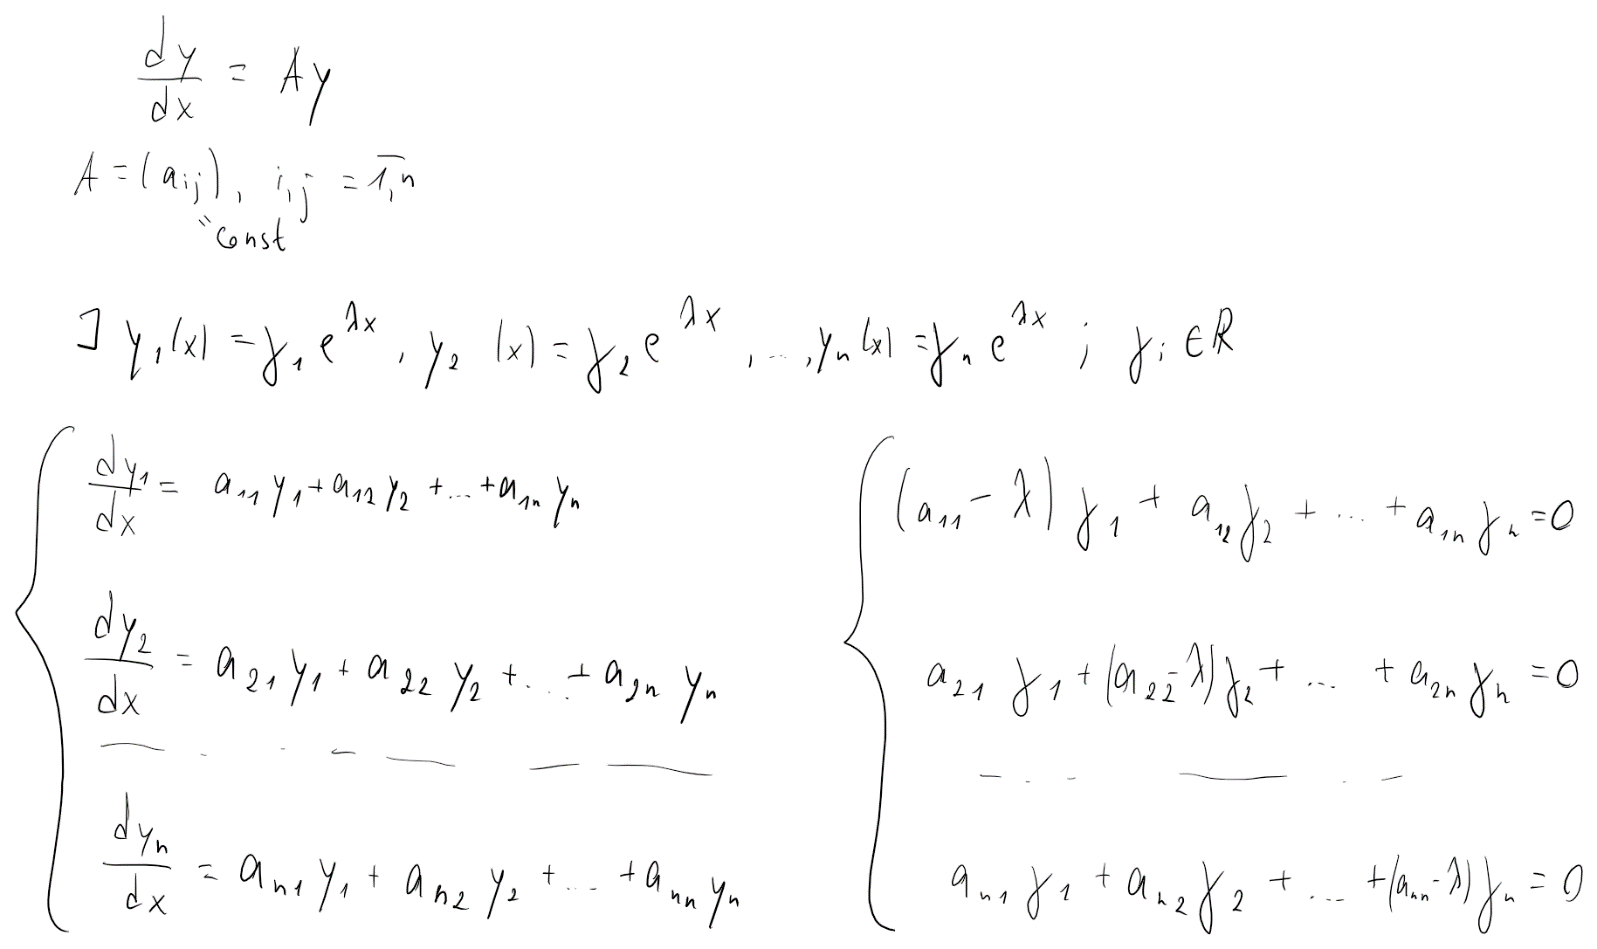 dy/dx = Ay
A = (aij), i,j = 1,n̅
"const
∃ y₁(x) = γ₁ e^λx, y₂(x) = γ₂ e^λx, ..., yₙ(x) = γₙ e^λx ; γᵢ ∈ R
dy₁/dx = a₁₁ y₁ + a₁₂ y₂ + ... + a₁ₙ yₙ
dy₂/dx = a₂₁ y₁ + a₂₂ y₂ + ... + a₂ₙ yₙ
dyₙ/dx = aₙ₁ y₁ + aₙ₂ y₂ + ... + aₙₙ yₙ
(a₁₁ - λ) γ₁ + a₁₂ γ₂ + ... + a₁ₙ γₙ = 0
a₂₁ γ₁ + (a₂₂ - λ) γ₂ + ... + a₂ₙ γₙ = 0
aₙ₁ γ₁ + aₙ₂ γ₂ + ... + (aₙₙ - λ) γₙ = 0